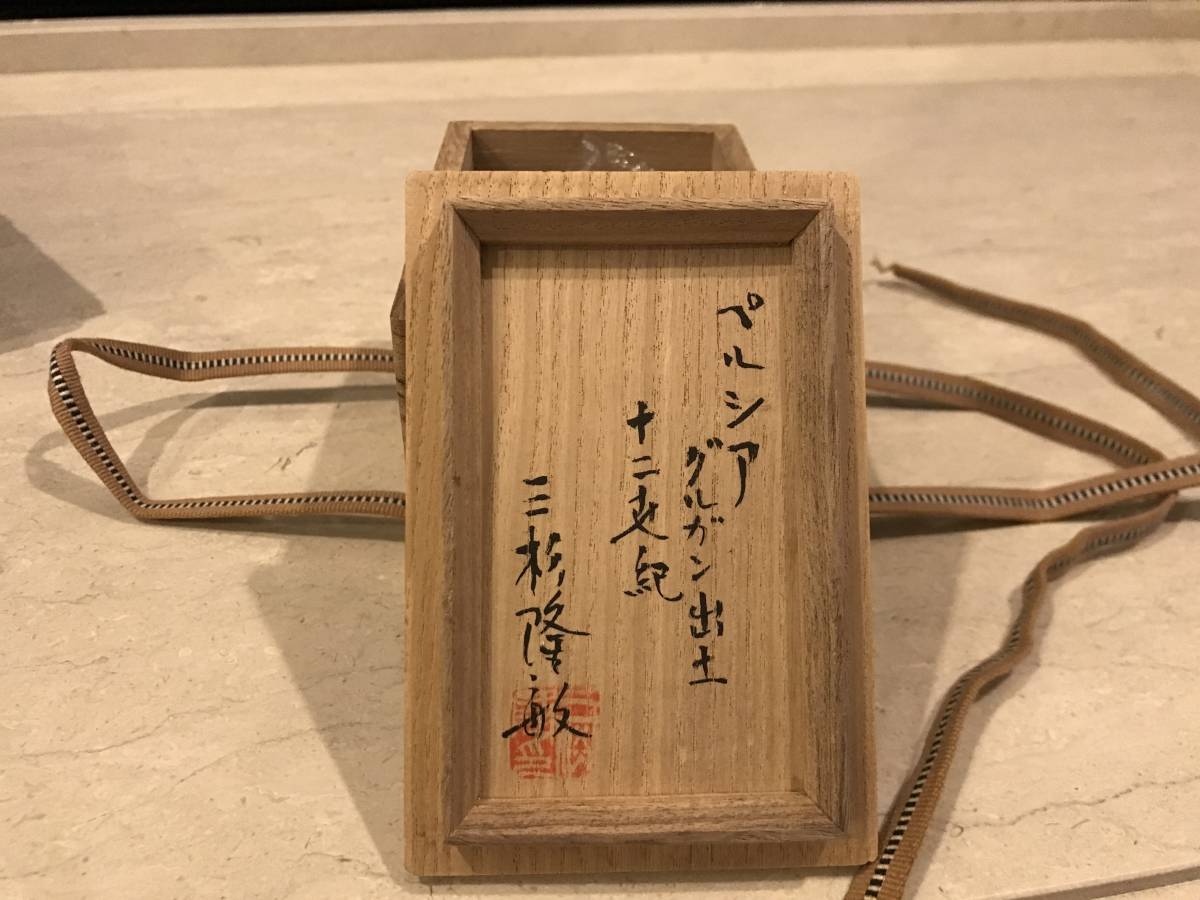 ペルシア
グルガン出土
十二世紀
三杉隆敏